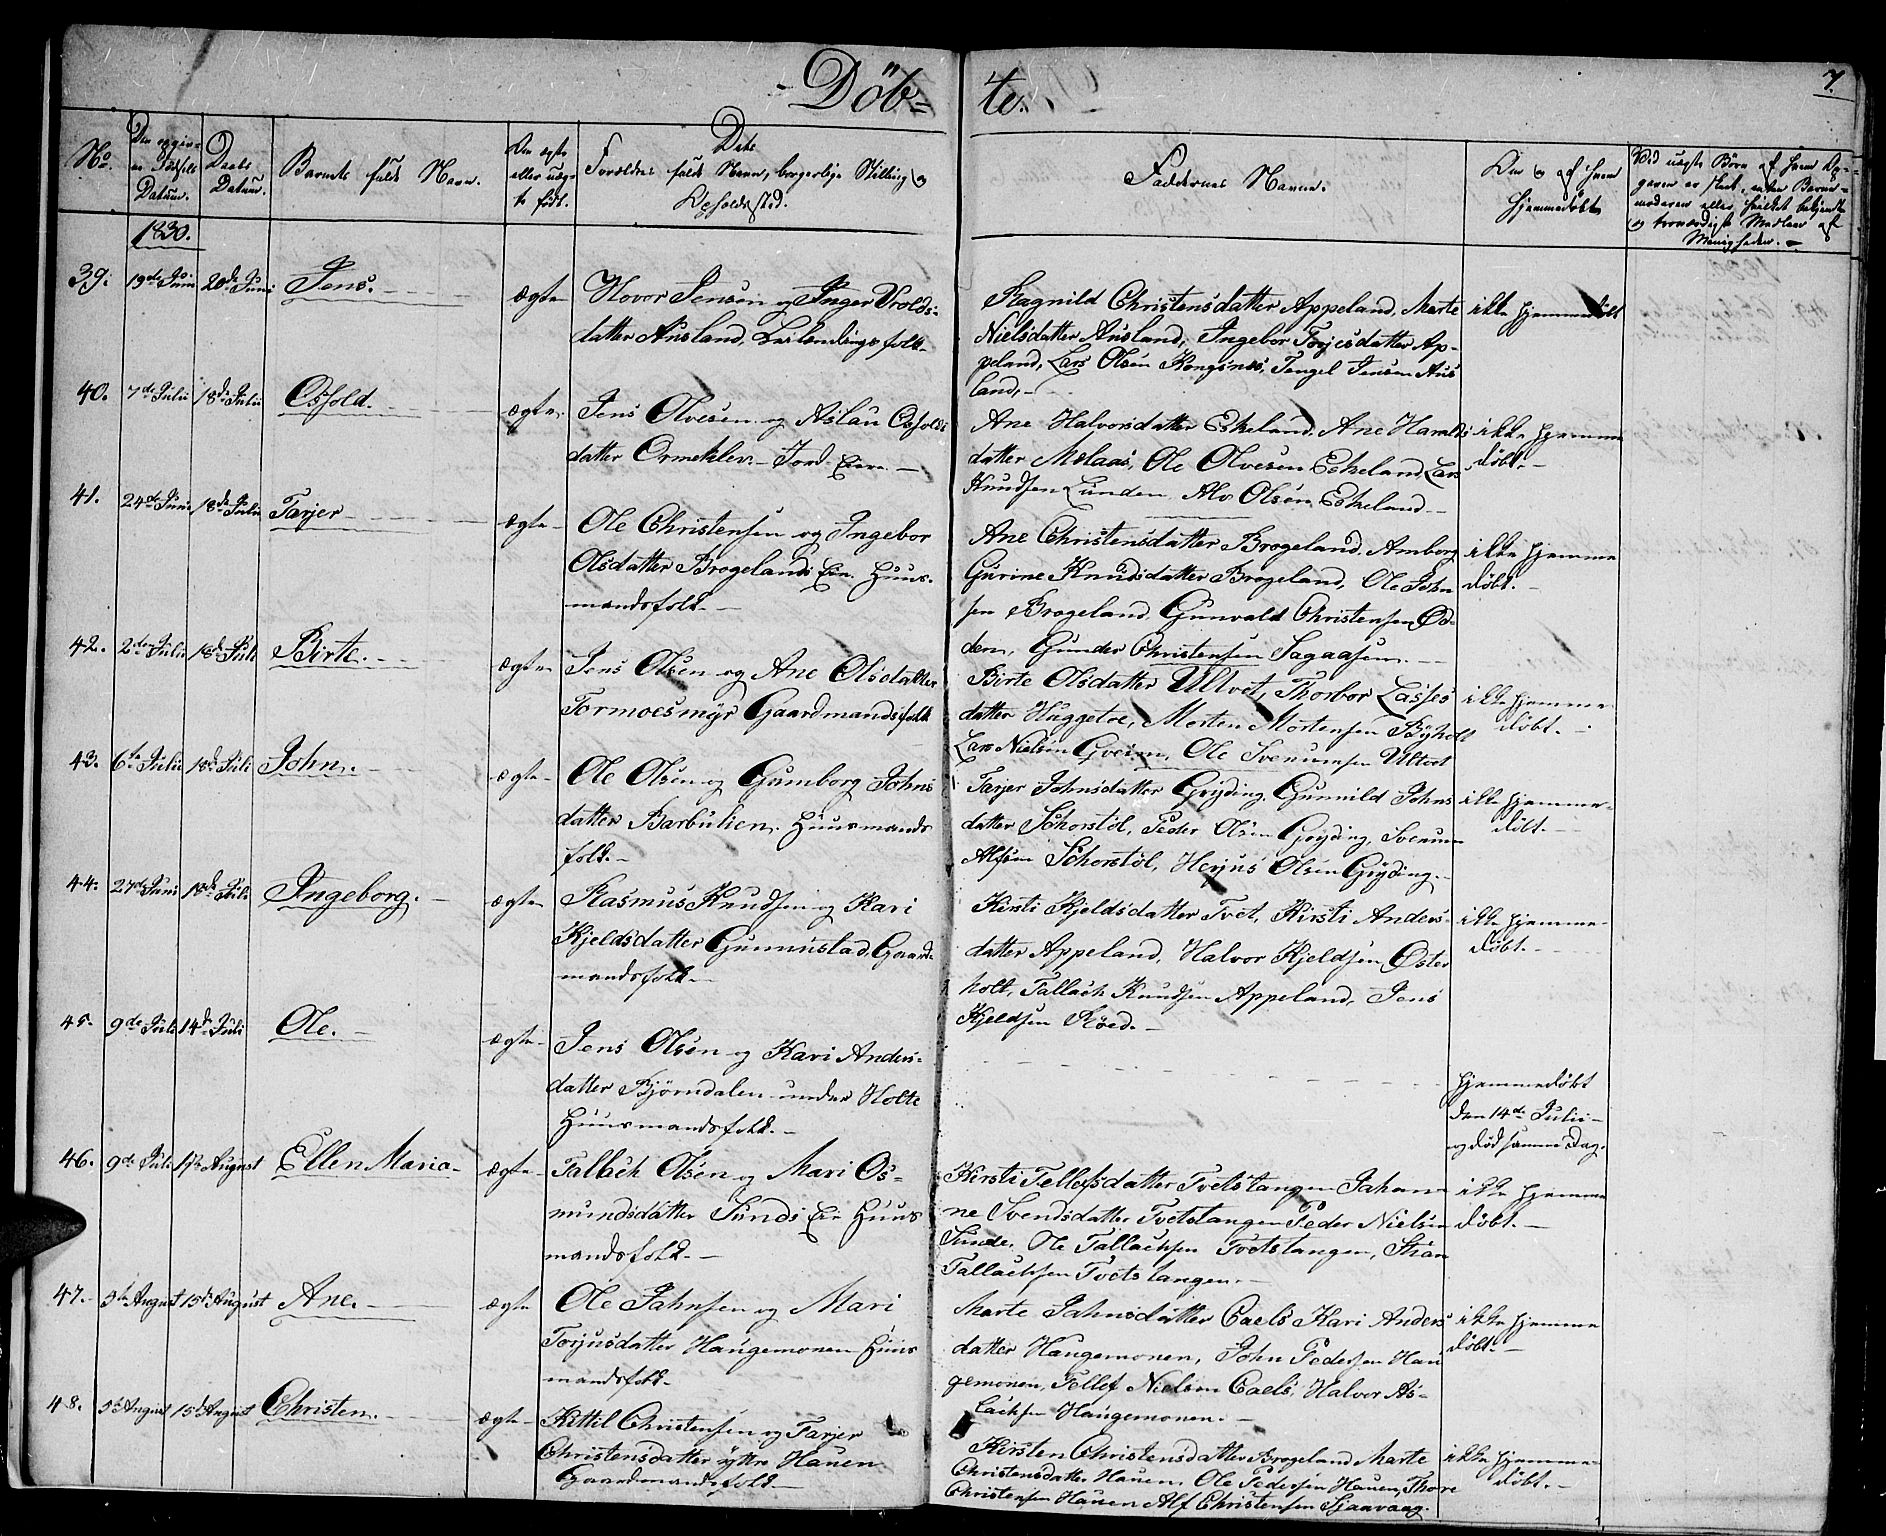 Döb= te.
7.
No.
Den opgiv-
ne Födsels
Datum.
Daabs
Datum.
Barnets fulde Navn.
Om ægte
eller uæg-
te født.
Dets
Forældres fulde Navn, borgerlige Stilling og
Opholdssted.
Faddernes Navne.
Om og af hvem
hjemmedøbt
Ved uægte Børn af hvem Op-
gaven er skeet, enten Barne-
moderen eller hvilket bekjendte
og troværdigt Medlem af
Menigheden.
1830.
39. 19de Juni 20de Juni Jens. ægte Hovor Jensen og Inger Trolds-
datter Ausland, Leilendingsfolk
Ragnild Christensdatter Appeland, Marte
Nielsdatter Ausland, Ingebor Torjesdatter Ap-
peland, Lars Olsen Kongsnes, Tengel Jensen Aus
land,
ikke hjemmedöbt
40. 7de Julii 18de Julii Osfold. ægte Jens Olvesen og Aslau Osfolds
datter Ormeklev. Jord Eier
Ane Halvorsdatter Eskeland, Ane Haralds
datter Molaas, Ole Olvesen Eskeland, Lars
Knudsen Lunden, Alv Olsen Eskeland
ikke hjemme
döbt.
41. 24de Juni 18de Julii Tarjer ægte Ole Christensen og Ingebor
Olsdatter Brogelands Eie. Huus-
mandsfolk.
Ane Christensdatter Brogeland, Amborg
Gurine Knudsdatter Brogeland, Ole John
sen Brogeland, Gunvald Christensen Ös-
dern, Gunder Christensen Sagaasen.
ikke hjemme
döbt.
42. 2den Julii 18de Juli Birte. ægte Jens Olsen og Ane Olsdatter
Tormoesmyr Gaardmandsfolk
Birte Olsdatter Ultvet, Thorbor Lasses
datter Huggetoe, Morten Mortensen Byholt
Lars Nielsen Gveen, Ole Svenumsen Ultvet
ikke hjemme
döbt.
43. 6te Julii 18de Juli John. ægte Ole Olsen og Gumborg Johns
datter Barbulien. Huusmands
folk.
Tarjer Johnsdatter Gryding, Gunnild Johns
datter Schorstöl, Peder Olsen Gryding, Svenum
Alfsen Schorstöl, Herjus Olsen Gryding.
ikke hjemme-
döbt.
44. 27de Juni 18de Juli Ingeborg. ægte Rasmus Knudsen og Kari
Kjeldsdatter Gumustad, Gaard-
mandsfolk.
Kirsti Kjeldsdatter Tvet, Kirsti Anders-
datter Appeland, Halvor Kjeldsen Öster
holt, Tallach Knudsen Appeland, Jens
Kjeldsen Röed.
ikke hjemme-
döbt.
45. 9de Juli 14de Juli Ole. ægte Jens Olsen og Kari Anders-
datter Björndalen under Holte
Huusmandsfolk.
hjemmedöbt
den 14de Julii
og död samme Dag.
46. 9de Juli August Ellen Maria. ægte Tallach Olsen og Mari Os-
mundsdatter Sunds Eie Huus
mandsfolk.
Kirsti Tellefsdatter Tvetstangen Johan-
ne Svendsdatter Tvetstangen Peder Nielsen
Sunde, Ole Tallachsen Tvetstangen, Stian
Tallachsen Tvetstangen.
ikke hjemme
döbt.
47. 5te August 15de August Ane. ægte Ole Jahnsen og Mari
Torjusdatter Haugemonen Huus
mandsfolk.
Marte Jahnsdatter Caels Kari Anders
datter Haugemonen, John Pedersen Hau
gemonen, Tellef Nielsen Caels, Halvor As-
lachsen Haugemonen.
ikke hjemme
döbt.
48. 5te August 15de August Christen. ægte Kittil Christensen og Tarjer
Christensdatter yttre Hauen
Gaardmandsfolk.
Kirsten Christensdatter Brogeland Marte
Christensdatter Hauen, Ole Pedersen Hauen, Thore
Christensen Hauen Alf Christensen Sjaavaag.
ikke hjemme-
döbt.